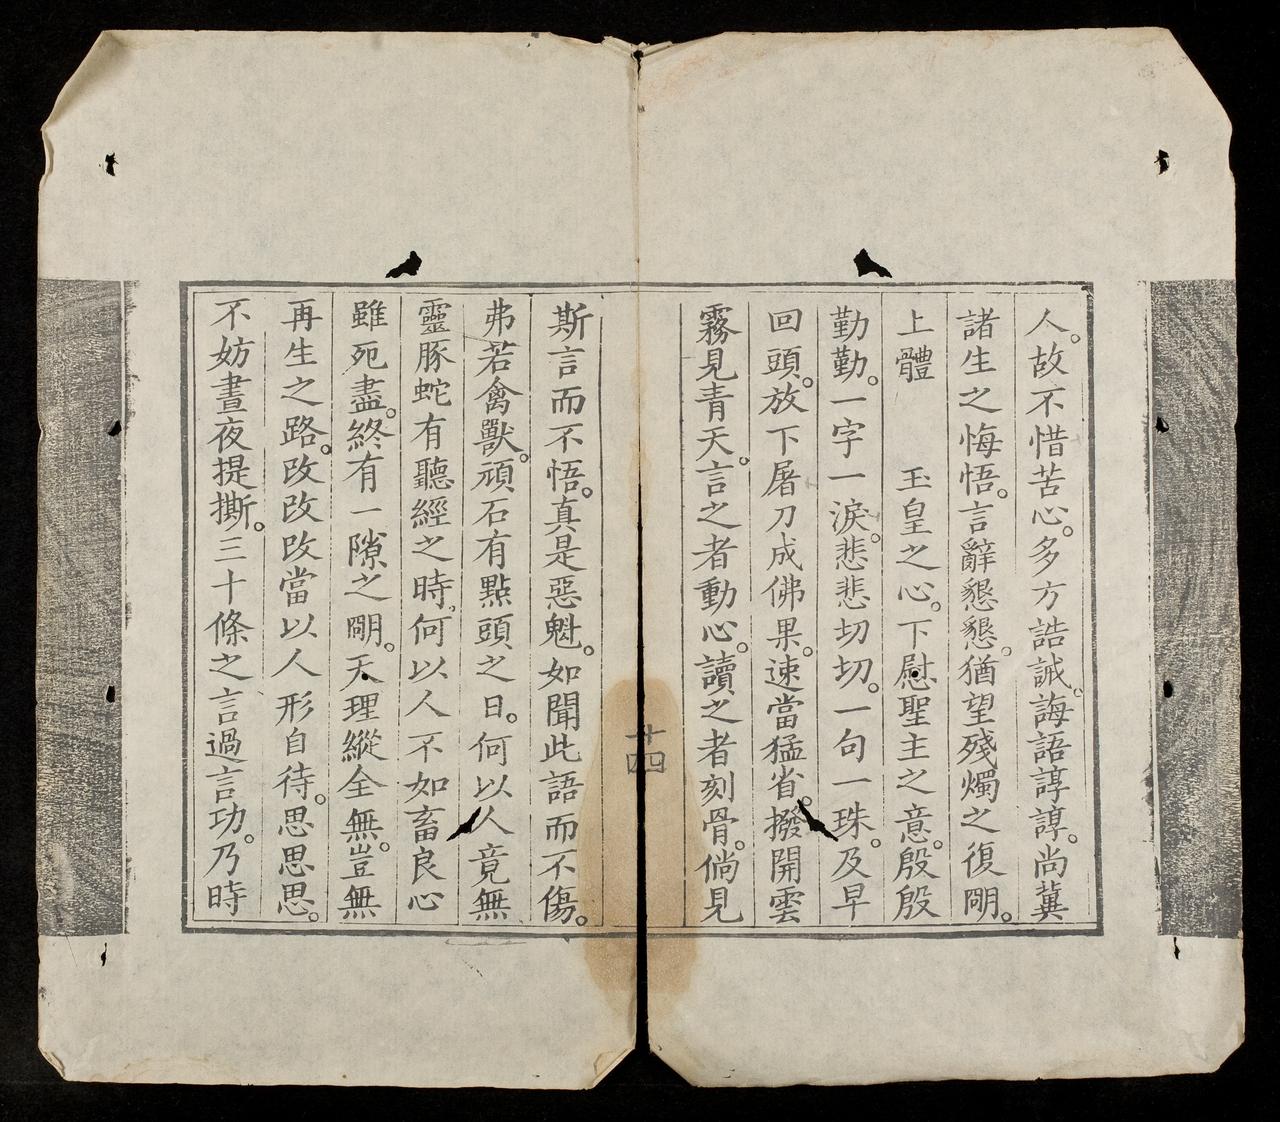 人。故不惜苦心。多方誥誡。誨語諄諄。尚冀
諸生之悔悟。言辭懇懇。猶望殘燭之復明。
上體　玉皇之心。下慰聖主之意。殷殷
勤勤。一字一淚。悲悲切切。一句一珠。及早
回頭。放下屠刀成佛果。速當猛省。撥開雲
霧見青天。言之者動心。讀之者刻骨。倘見
廿四
斯言而不悟。真是惡魁。如聞此語而不傷。
弗若禽獸。頑石有點頭之日。何以人竟無
靈豚蛇有聽經之時。何以人不如畜良心
雖死盡。終有一隙之明。天理縱全無。豈無
再生之路。改改改當以人形自待。思思思。
不妨晝夜提撕。三十條之言過言功。乃時